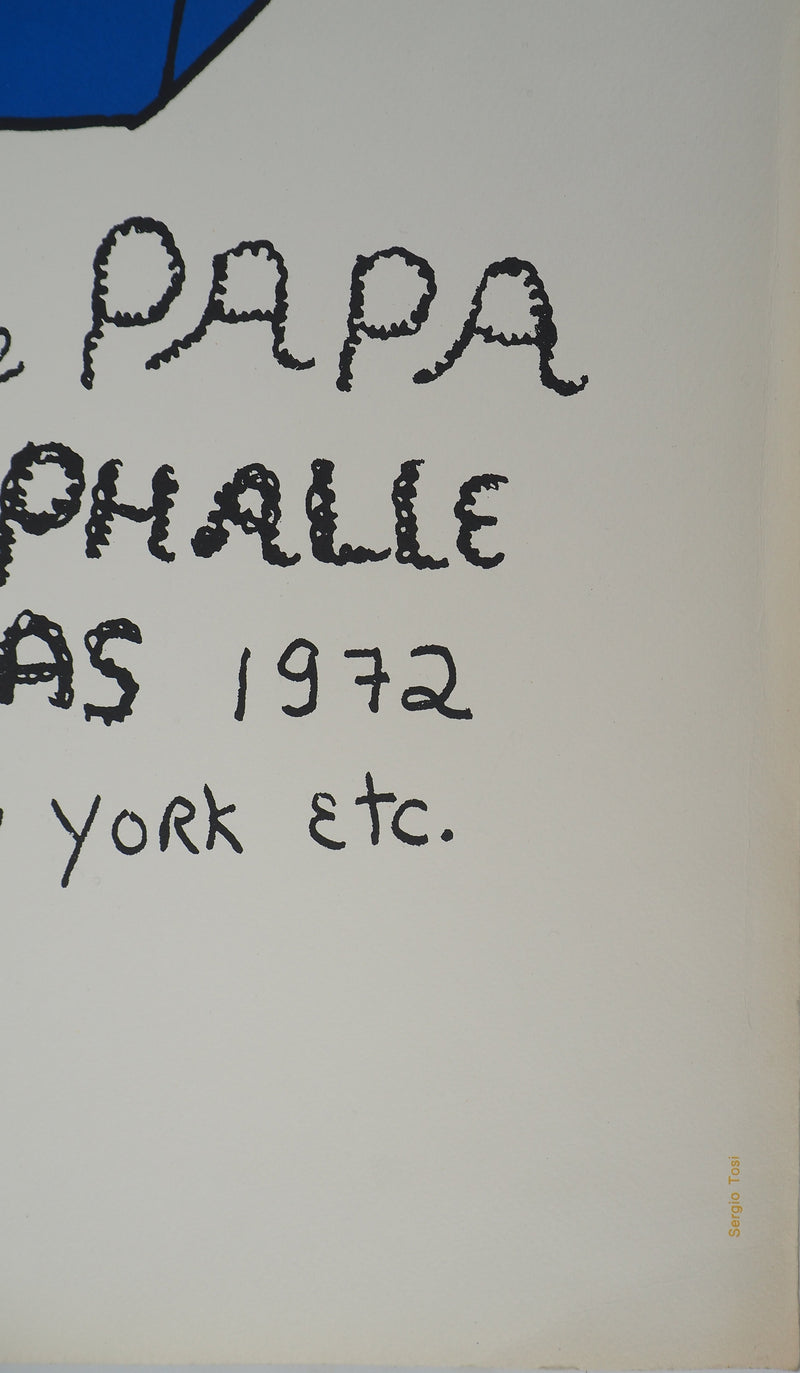 e PAPA
PHALLE
AS 1972
YORK Etc.
Sergio Tosi